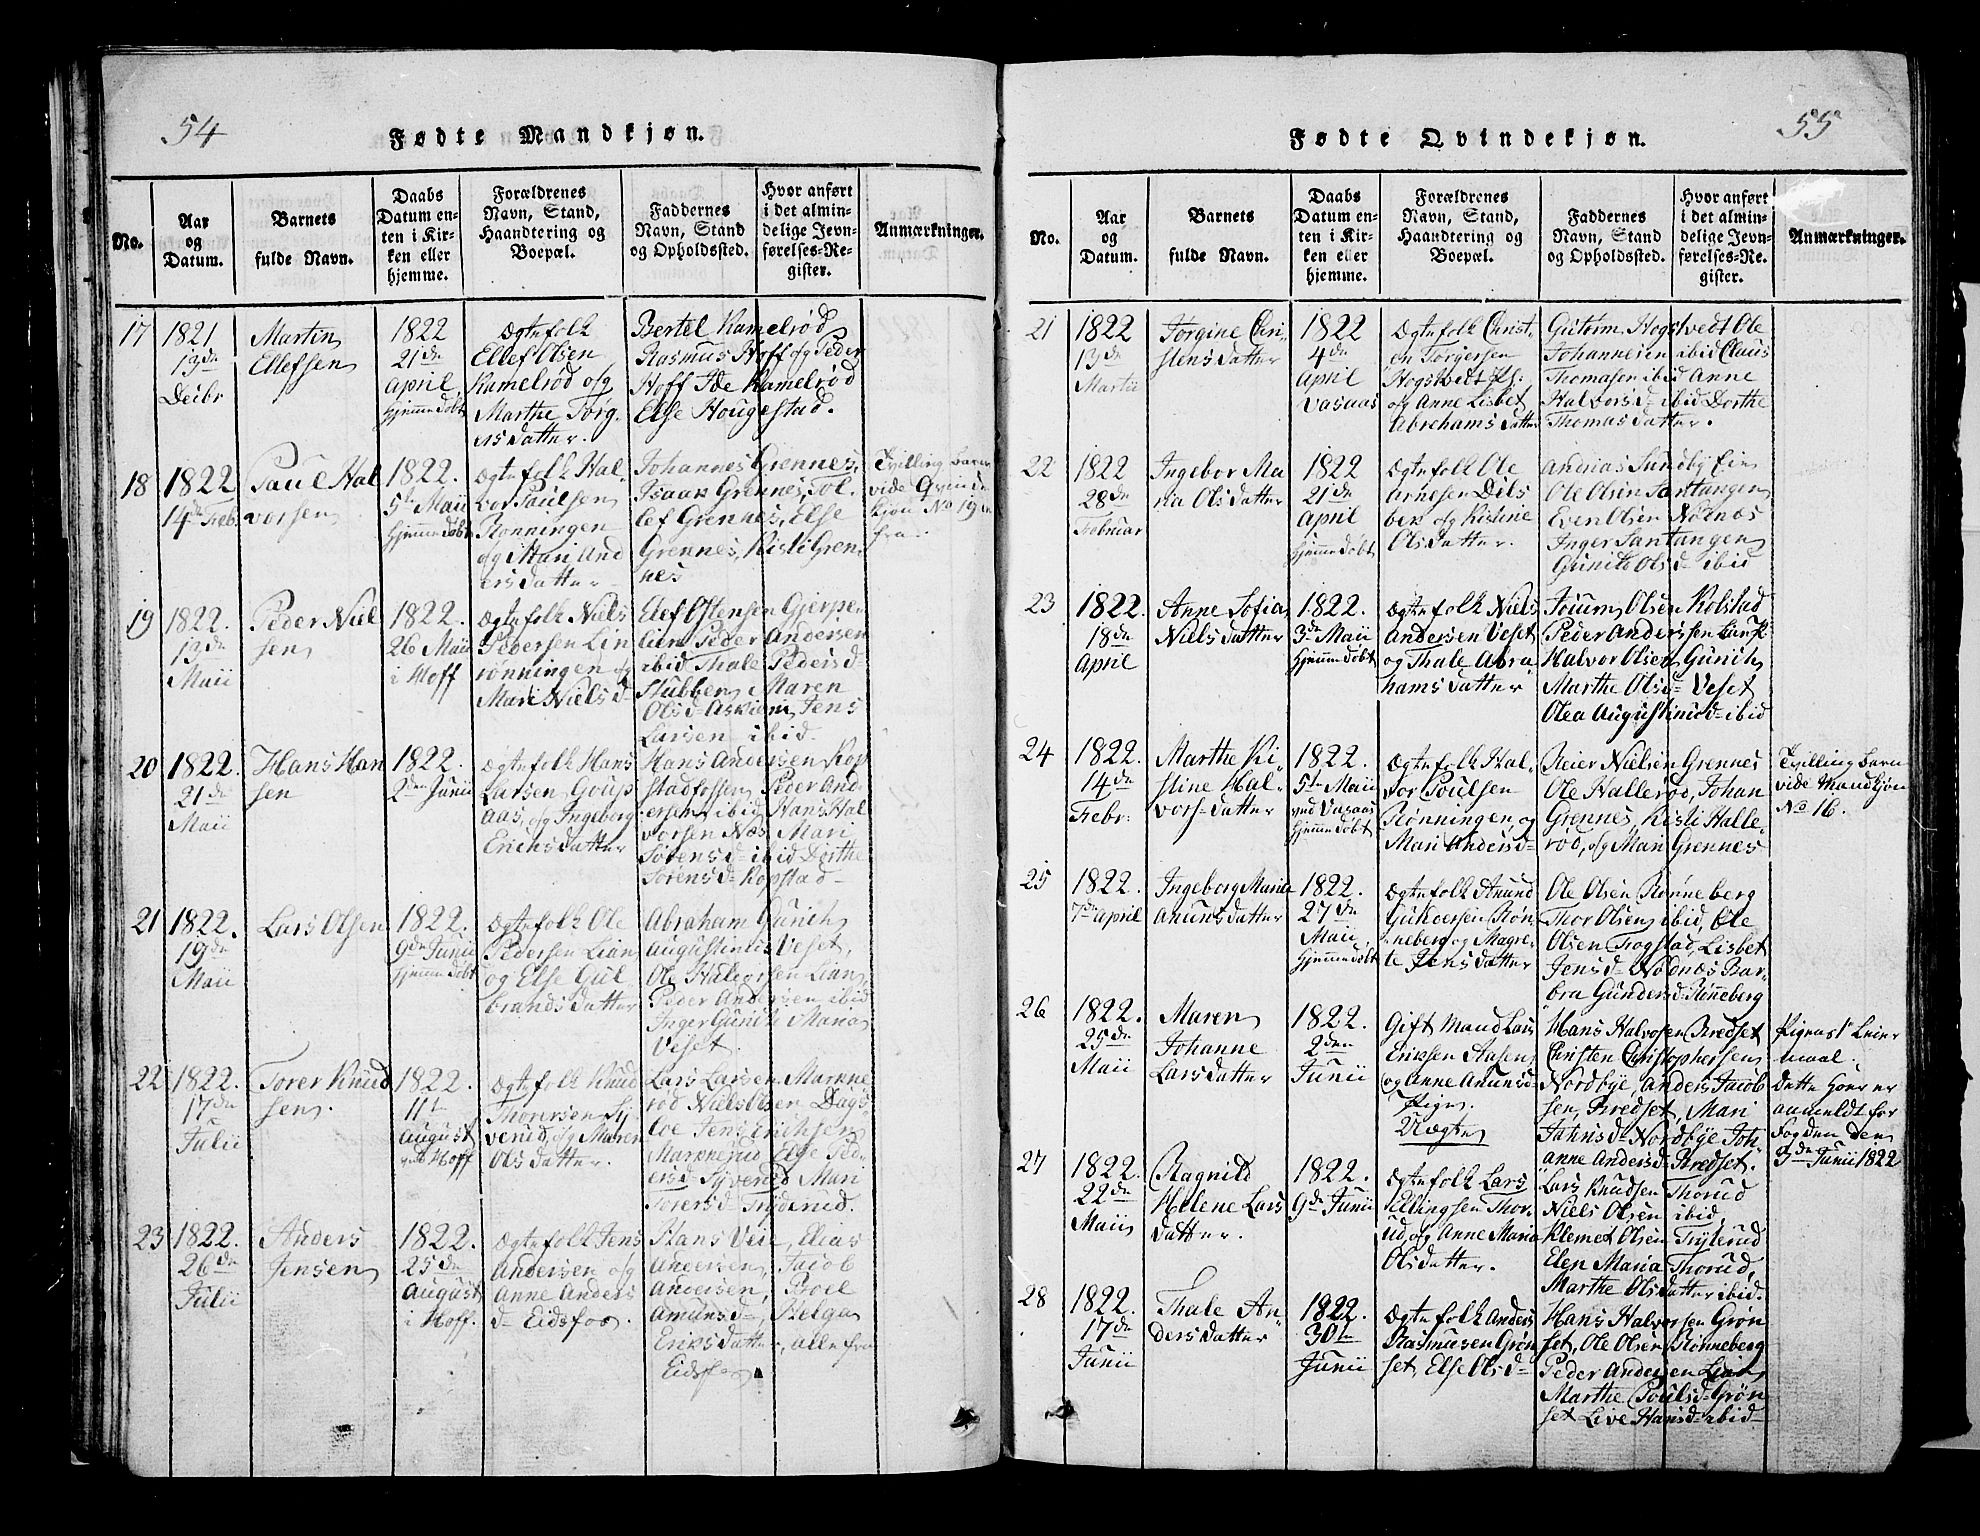 54
Fødte Mandkjøn.
No.
Aar
og
Datum.
Barnets
fulde Navn.
Daabs
Datum en-
ten i Kir-
ken eller
hjemme.
Forældrenes
Navn, Stand,
Haandtering og
Boepæl.
Faddernes
Navn, Stand
og Opholdssted.
Hvor anført
i det almin-
delige Jevn-
førelses-Re-
gister.
Anmærkninger.
17
1821
13de
Decbr
Martin
Ellefsen
1822
21de
April
Hjemmedøbt
Ægtefolk
Ellef Olsen
Kamelrød ofg
Marthe Torg-
ersdatter.
Bertel Kamelrød
Rasmus Hoff ofg Peder
Hoff Ide Kamelrød
Else Hougestad.
18
1822
14de Febr.
Paul Hal
vorsen
1822.
5te Maii
Hjemmedøbt
Ægtefolk Hal-
vor Paulsen
Rønningen
ofg Mari And
ersdatter
Johannes Grennes,
Isaak Grennes, Tol-
lef Grennes, Else
Grennes, Kisti Gren-
nes
Tvilling Barn
vide Qvinde
kjøn No 19
fra
19
1822.
13de
Maii
Peder Niel
sen
1822.
26 Maii
i Hoff
Ægtefolk Niels
Pedersen Lin
rønningen ofg
Mari Nielsd
Elef Østensen Gjerpe-
lien Peder Andersen
ibid Thale Pedersd
Stubben, Maren
Olsd Askiem, Jens
Larsen ibid
20
1822.
21de
Maii
Hans Han
sen
1822.
2den Junii
Ægtefolk Hans
Larsen Goup
aas, og Ingeborg
Ericksdatter
Hans Andersen Kop
stadfossen, Peder And-
ersen ibid, Hans Hal
vorsen Næs, Mari
Sørensd ibid Dorthe
Sørensd Kopstad
21
1822.
19de
Maii
Lars Olsen
1822.
9de Junii
Hjemmedøbt
Ægtefolk Ole
Pedersen Lian
og Else Gul
brandsdatter
Abraham Gurich
Augustinus Veset,
Ole Halvorsen Lian,
Peder Andersen ibid
Inger Gurich Maria
Veset.
22
1822.
17de
Julii
Torer Knud
sen.
1822.
11te
August
ved Hoff
Ægtefolk Knud
Thorersen Sy
verud, ofg Maren
Olsdatter.
Lars Larsen Markne
rod Niels Olsen Dags-
loe Jens Ericksen
Marknerud Else Ped-
ersd Syverud Mari
Torersd Tryterud.
23
1822.
26de
Julii
Anders
Jensen
1822.
25de
August
i Hoff.
Ægtefolk Jens
Andersen ofg
Anne Anders
d Eidsfos
Hans Veie, Elias
Andersen, Jacob
Andersen, Boel
Amunsd, Helga
Ericksdatter, alle fra
Eidsfos
55
Fødte Qvindekjøn.
No.
Aar
og
Datum.
Barnets
fulde Navn.
Daabs
Datum en-
ten i Kir-
ken eller
hjemme.
Forældrenes
Navn, Stand,
Haandtering og
Boepæl.
Faddernes
Navn, Stand
og Opholdssted.
Hvor anført
i det almin-
delige Jevn-
førelses-Re-
gister.
Anmærkninger.
21
1822
13de
Martii
Jorgine Chri-
stensdatter
1822
4de
April
Vasaas
Ægtefolk Christ-
en Torgersen
Hogstvedt
ofg Anne Lisbet
Abrahamsdatter
Gutorm Hogstvedt Ole
Johannesen ibid Claus
Thomasen ibid Anne
Halvorsd ibid Dorthe
Thomasdatter.
22
1822
28de
Februar
Ingebor Ma-
ria Olsdatter
1822
21de
April
Hjemmedøbt
Ægtefolk Ole
Arnesen Dils
bek ofg Kistine
Olsdatter.
Andreas Sundby
Ole Olsen Santangen
Even Olsen Nøtnæs
Inger Santangen
Gunild Olsd ibid
23
1822.
18de
April
Anne Sofia
Nielsdatter
1822.
3de Maii
Hjemmedøbt
Ægtefolk Niels
Andersen Veset
og Thale Abra
hamsdatter
Joium Olsen Kolstad
Peder Anderssen
Halvor Olsen Gurich
Marthe Olsd Veset
Olea Augustinusd ibid
24
1822.
14de
Febr:
Marthe Ki-
stine Hal-
vorsdatter
1822.
5te Maii
ved Vasaas
Hjemmedøbt
Ægtefolk Hal-
vor Poulsen
Rønningen, og
Mari Andersd
Reier Nielsen Grennes
Ole Hallerød, Johan
Grennes, Kisti Halle-
rød, ofg Mari Grennes
Tvilling Barn
vide Mandkjøn
No 16.
25
1822.
7de April
Ingeborg Maria
Anunsdatter
1822.
27de
Maii
Hjemmedøbt
Ægtefolk Anund
Gulversen Røn-
neberg og Magre-
te Jensdatter
Ole Olsen Rønneberg
Thor Olsen ibid, Ole
Olsen Trogstad, Lisbet
Jensd Nødnæs Bar-
bra Gundersd Rønneberg
26
1822.
25de
Maii
Maren
Johanne
Larsdatter
1822.
2den
Junii
Gift Mand Lars
Ericksen Aasen
og Anne Amunsd
Pige.
Uægte
Hans Halvosen Bredset
Christen Christophersen
Nordbye, Anders Jacob
sen, Bredset, Mari
Jahnsd Nordbye Joh
anne Andersd Bredset.
Pigens 1te Leier
maal.
dette Hoer er
anmeldt for
Fogden den
3de Junii 1822
27
1822.
22de
Maii
Ragnild
Helene Lars
datter.
1822.
9de Junii
Ægtefolk Lars
Ellingsen Thor-
ud, ofg Anne Maria
Olsdatter.
Lars Knudsen Thorud
Niels Olsen ibid,
Klemet Olsen Tryterud
Elen Maria Thorud,
Marthe Olsdatter ibid.
28
1822.
17de
Junii
Thale An-
dersdatter
1822.
30te
Junii
Ægtefolk Anders
Rasmusen Grøn
set, Else Olsd
Hans Halvorsen Grøn
set, Ole Olsen Rønneberg
Peder Andersen Lian
Marthe Poulsd Grøn
set Live Hansd ibid